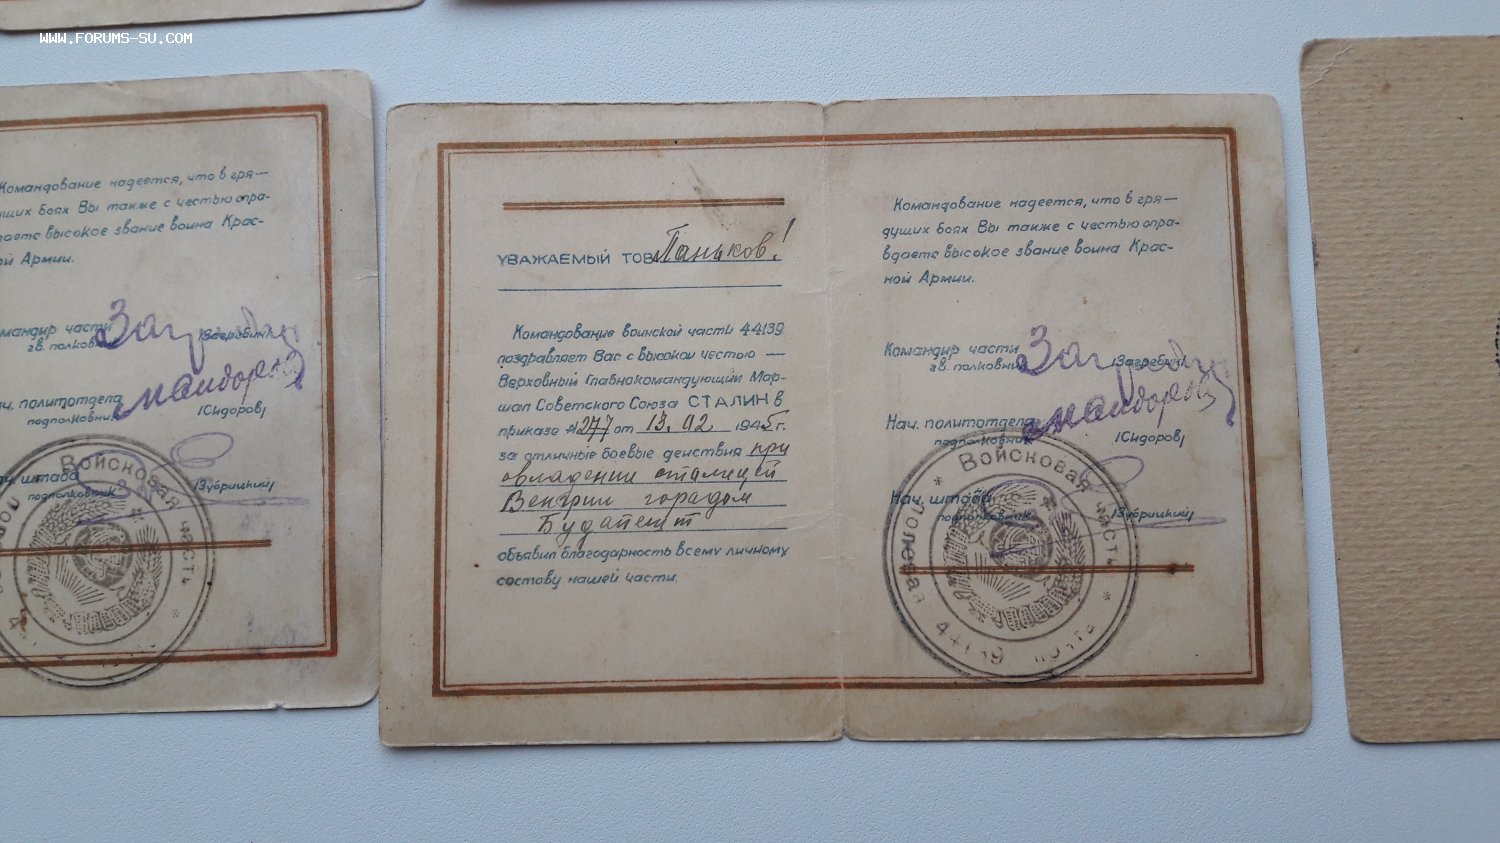 WWW.FORUMS-SU.COM
Командование надеется, что в гря—
дущих боях Вы также с честью опра-
вдаете высокое звание воина Крас-
ной Армии.
Командир части
гв. полковник /Загребин/
Нач. политотдела
подполковник /Сидоров/
Нач. штаба
подполковник /Зубрицкий/
Войсковая часть
УВАЖАЕМЫЙ ТОВ. Паньков!
Командование воинской части 44139
поздравляет Вас с высокой честью —
Верховный Главнокомандующий Мар-
шал Советского Союза СТАЛИН в
приказе №277 от 13.02 1945 г.
за отличные боевые действия при
овладении столицей
Венгрии городом
Будапешт
объявил благодарность всему личному
составу нашей части.
Командование надеется, что в гря—
дущих боях Вы также с честью опра-
вдаете высокое звание воина Крас-
ной Армии.
Командир части
гв. полковник /Загребин/
Нач. политотдела
подполковник /Сидоров/
Нач. штаба
подполковник /Зубрицкий/
Войсковая часть * Полевая почта 44139